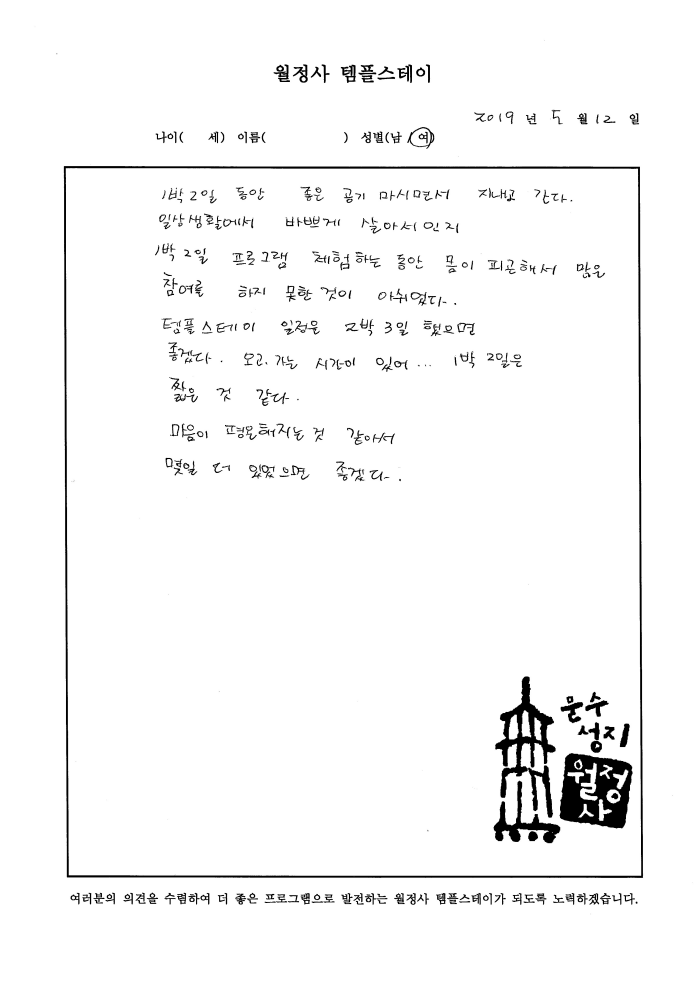 월정사 템플스테이
2019 년 5 월 12 일
나이(    세) 이름(            ) 성별(남 / 여)
1박 2일 동안 좋은 공기 마시면서 지내고 간다.
일상생활에서 바쁘게 살아서인지
1박 2일 프로그램 체험하는 동안 몸이 피곤해서 많은
참여를 하지 못한 것이 아쉬웠다.
템플스테이 일정은 2박 3일 했으면
좋겠다. 오고.가는 시간이 있어... 1박 2일은
짧은 것 같다.
마음이 평온해지는 것 같아서
몇일 더 있었으면 좋겠다.
문수
성지
월정
사
여러분의 의견을 수렴하여 더 좋은 프로그램으로 발전하는 월정사 템플스테이가 되도록 노력하겠습니다.